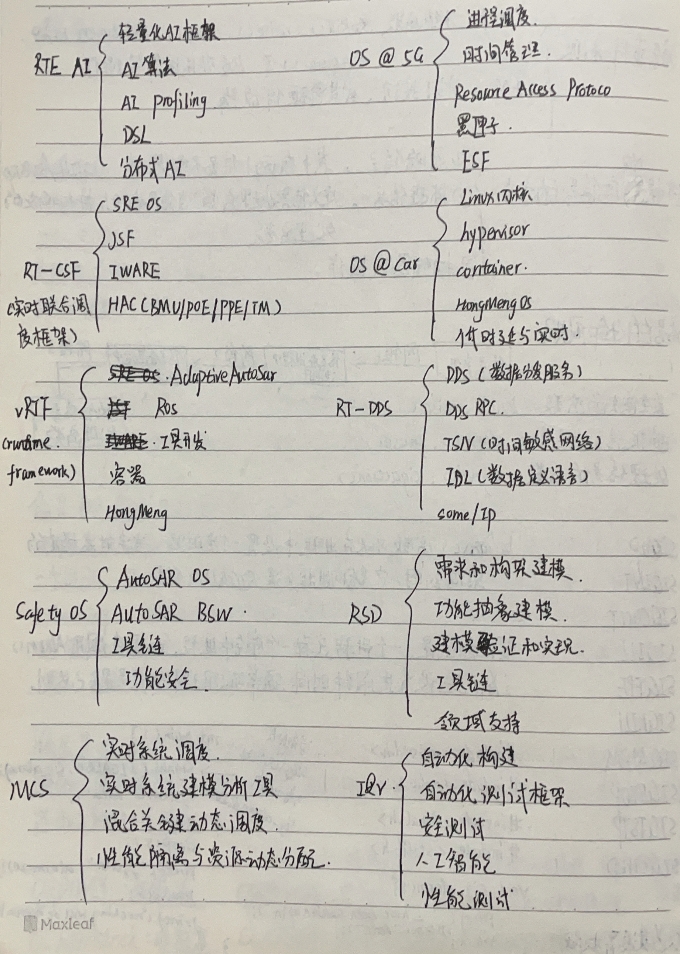 RTE AI
轻量化AI框架
AI算法
AI profiling
DSL
分布式AI
RT-CSF
(实时联合调
度框架)
SRE OS
JSF
IWARE
HAC(BMU/POE/PPE/TM)
vRTF
(runtime
framework)
AdaptiveAutosar
Ros
工具开发
容器
HongMeng
Safety OS
AutoSAR OS
AutoSAR BSW.
工具链
功能安全.
MCS
实时系统调度.
实时系统建模分析工具
混合关键动态调度.
性能隔离与资源动态分配.
OS @ 5G
进程调度.
时间管理.
Resource Access Protoco
黑匣子.
ESF
OS @ Car
Linux内核
hypervisor
container.
HongMeng OS
低时延与实时.
RT-DDS
DDS (数据分发服务)
DDS RPC.
TSN (时间敏感网络)
IDL (数据定义语言)
some/IP
RSD
需求和构架建模.
功能抽象建模.
建模验证和实现.
工具链
领域支持
IQV
自动化构建
自动化测试框架
安全测试
人工智能
性能测试
Maxleaf